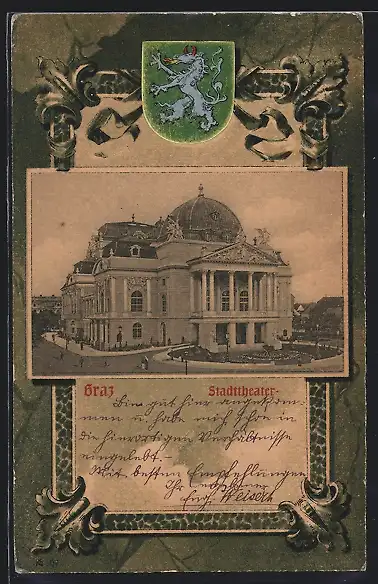 Graz Stadttheater-
Bin gut hier angekom-
men u. habe mich schon in
die hierortigen Verhältnisse
eingelebt. -
Mit besten Empfehlungen
Ihr
Eug. Weisert